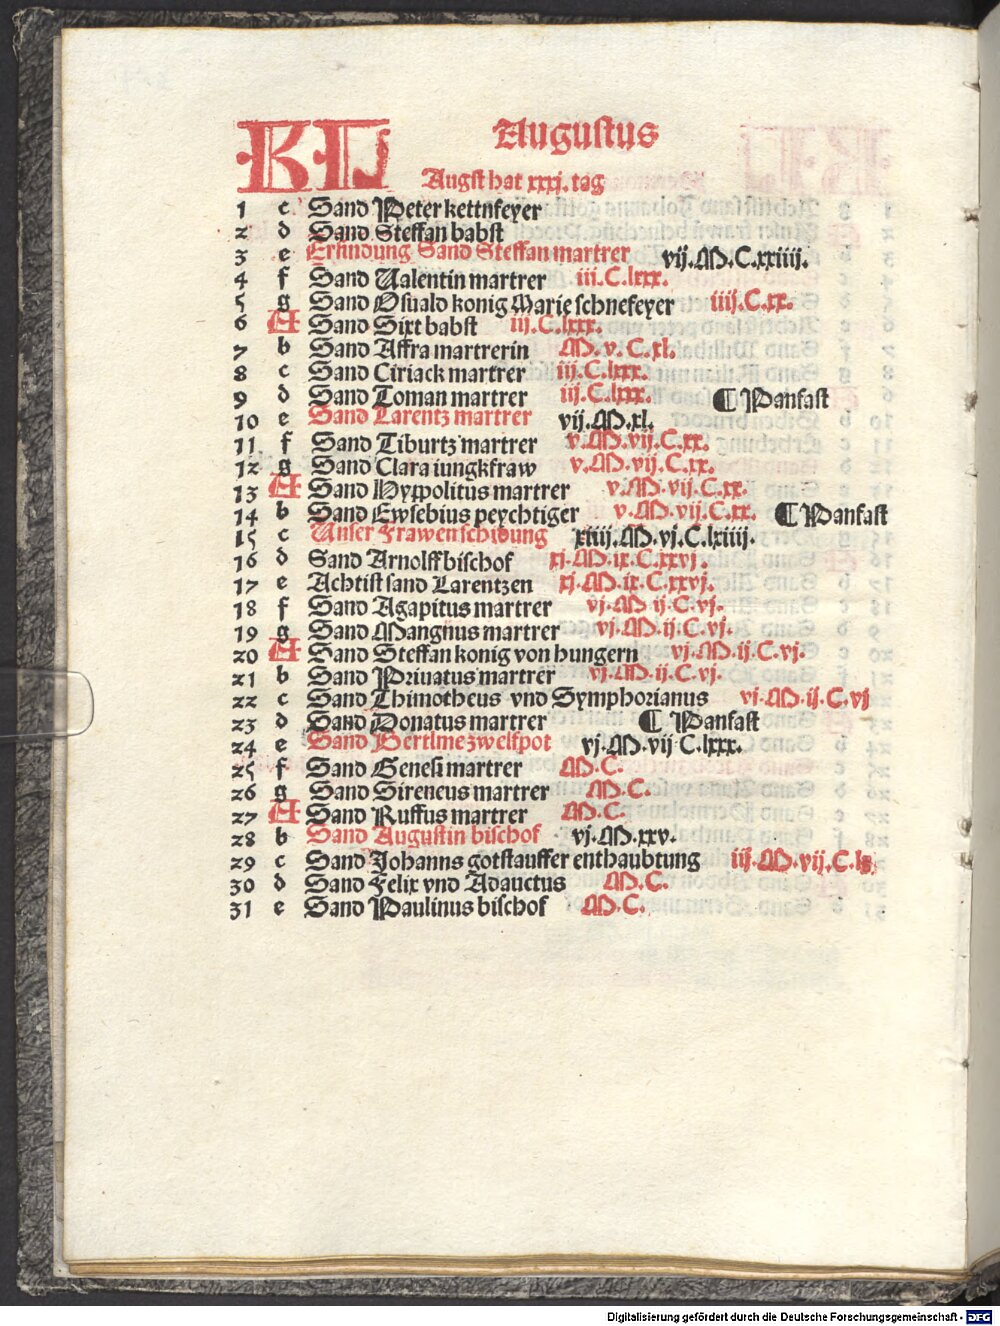 KL Augustus
Augst hat xxxj. tag
1 c Sand Peter kettnfeyer
2 d Sand Steffan babst
3 e Erfindung Sand Steffan martrer vij.M.C.xxiiij.
4 f Sand Valentin martrer iii.C.lxxx.
5 g Sand Osuald konig Marie schnefeyer iiij.C.xx.
6 A Sand Sixt babst iij.C.lxxx.
7 b Sand Affra martrerin M.v.C.xl.
8 c Sand Ciriack martrer iij.C.lxxx.
9 d Sand Toman martrer iij.C.lxxx. ¶ Panfast
10 e Sand Larentz martrer vij.M.xl.
11 f Sand Tiburtz martrer v.M.vij.C.xx.
12 g Sand Clara iungkfraw v.M.vij.C.xx.
13 A Sand Yppolitus martrer v.M.vij.C.xx.
14 b Sand Ewsebius peychtiger v.M.vij.C.xx. ¶ Panfast
15 c Unser Frawen schidung xiiij.M.vj.C.lxiiij.
16 d Sand Arnolff bischof xj.M.ix.C.xxvj.
17 e Achtist sand Larentzen xj.M.ix.C.xxvj.
18 f Sand Agapitus martrer vj.M.ij.C.vj.
19 g Sand Mangnus martrer vj.M.ij.C.vj.
20 A Sand Steffan konig von hungern vj.M.ij.C.vj.
21 b Sand Priuatus martrer vj.M.ij.C.vj.
22 c Sand Thimotheus vnd Symphorianus vj.M.ij.C.vj
23 d Sand Donatus martrer ¶ Panfast
24 e Sand Bertlme zwelfpot vj.M.vij C.lxxx.
25 f Sand Genesi martrer M.C.
26 g Sand Sireneus martrer M.C.
27 A Sand Ruffus martrer M.C.
28 b Sand Augustin bischof vj.M.xxv.
29 c Sand Johanns gotstauffer enthaubtung iij.M.vij.C.lx.
30 d Sand Felix vnd Adauctus M.C.
31 e Sand Paulinus bischof M.C.
Digitalisierung gefördert durch die Deutsche Forschungsgemeinschaft - DFG